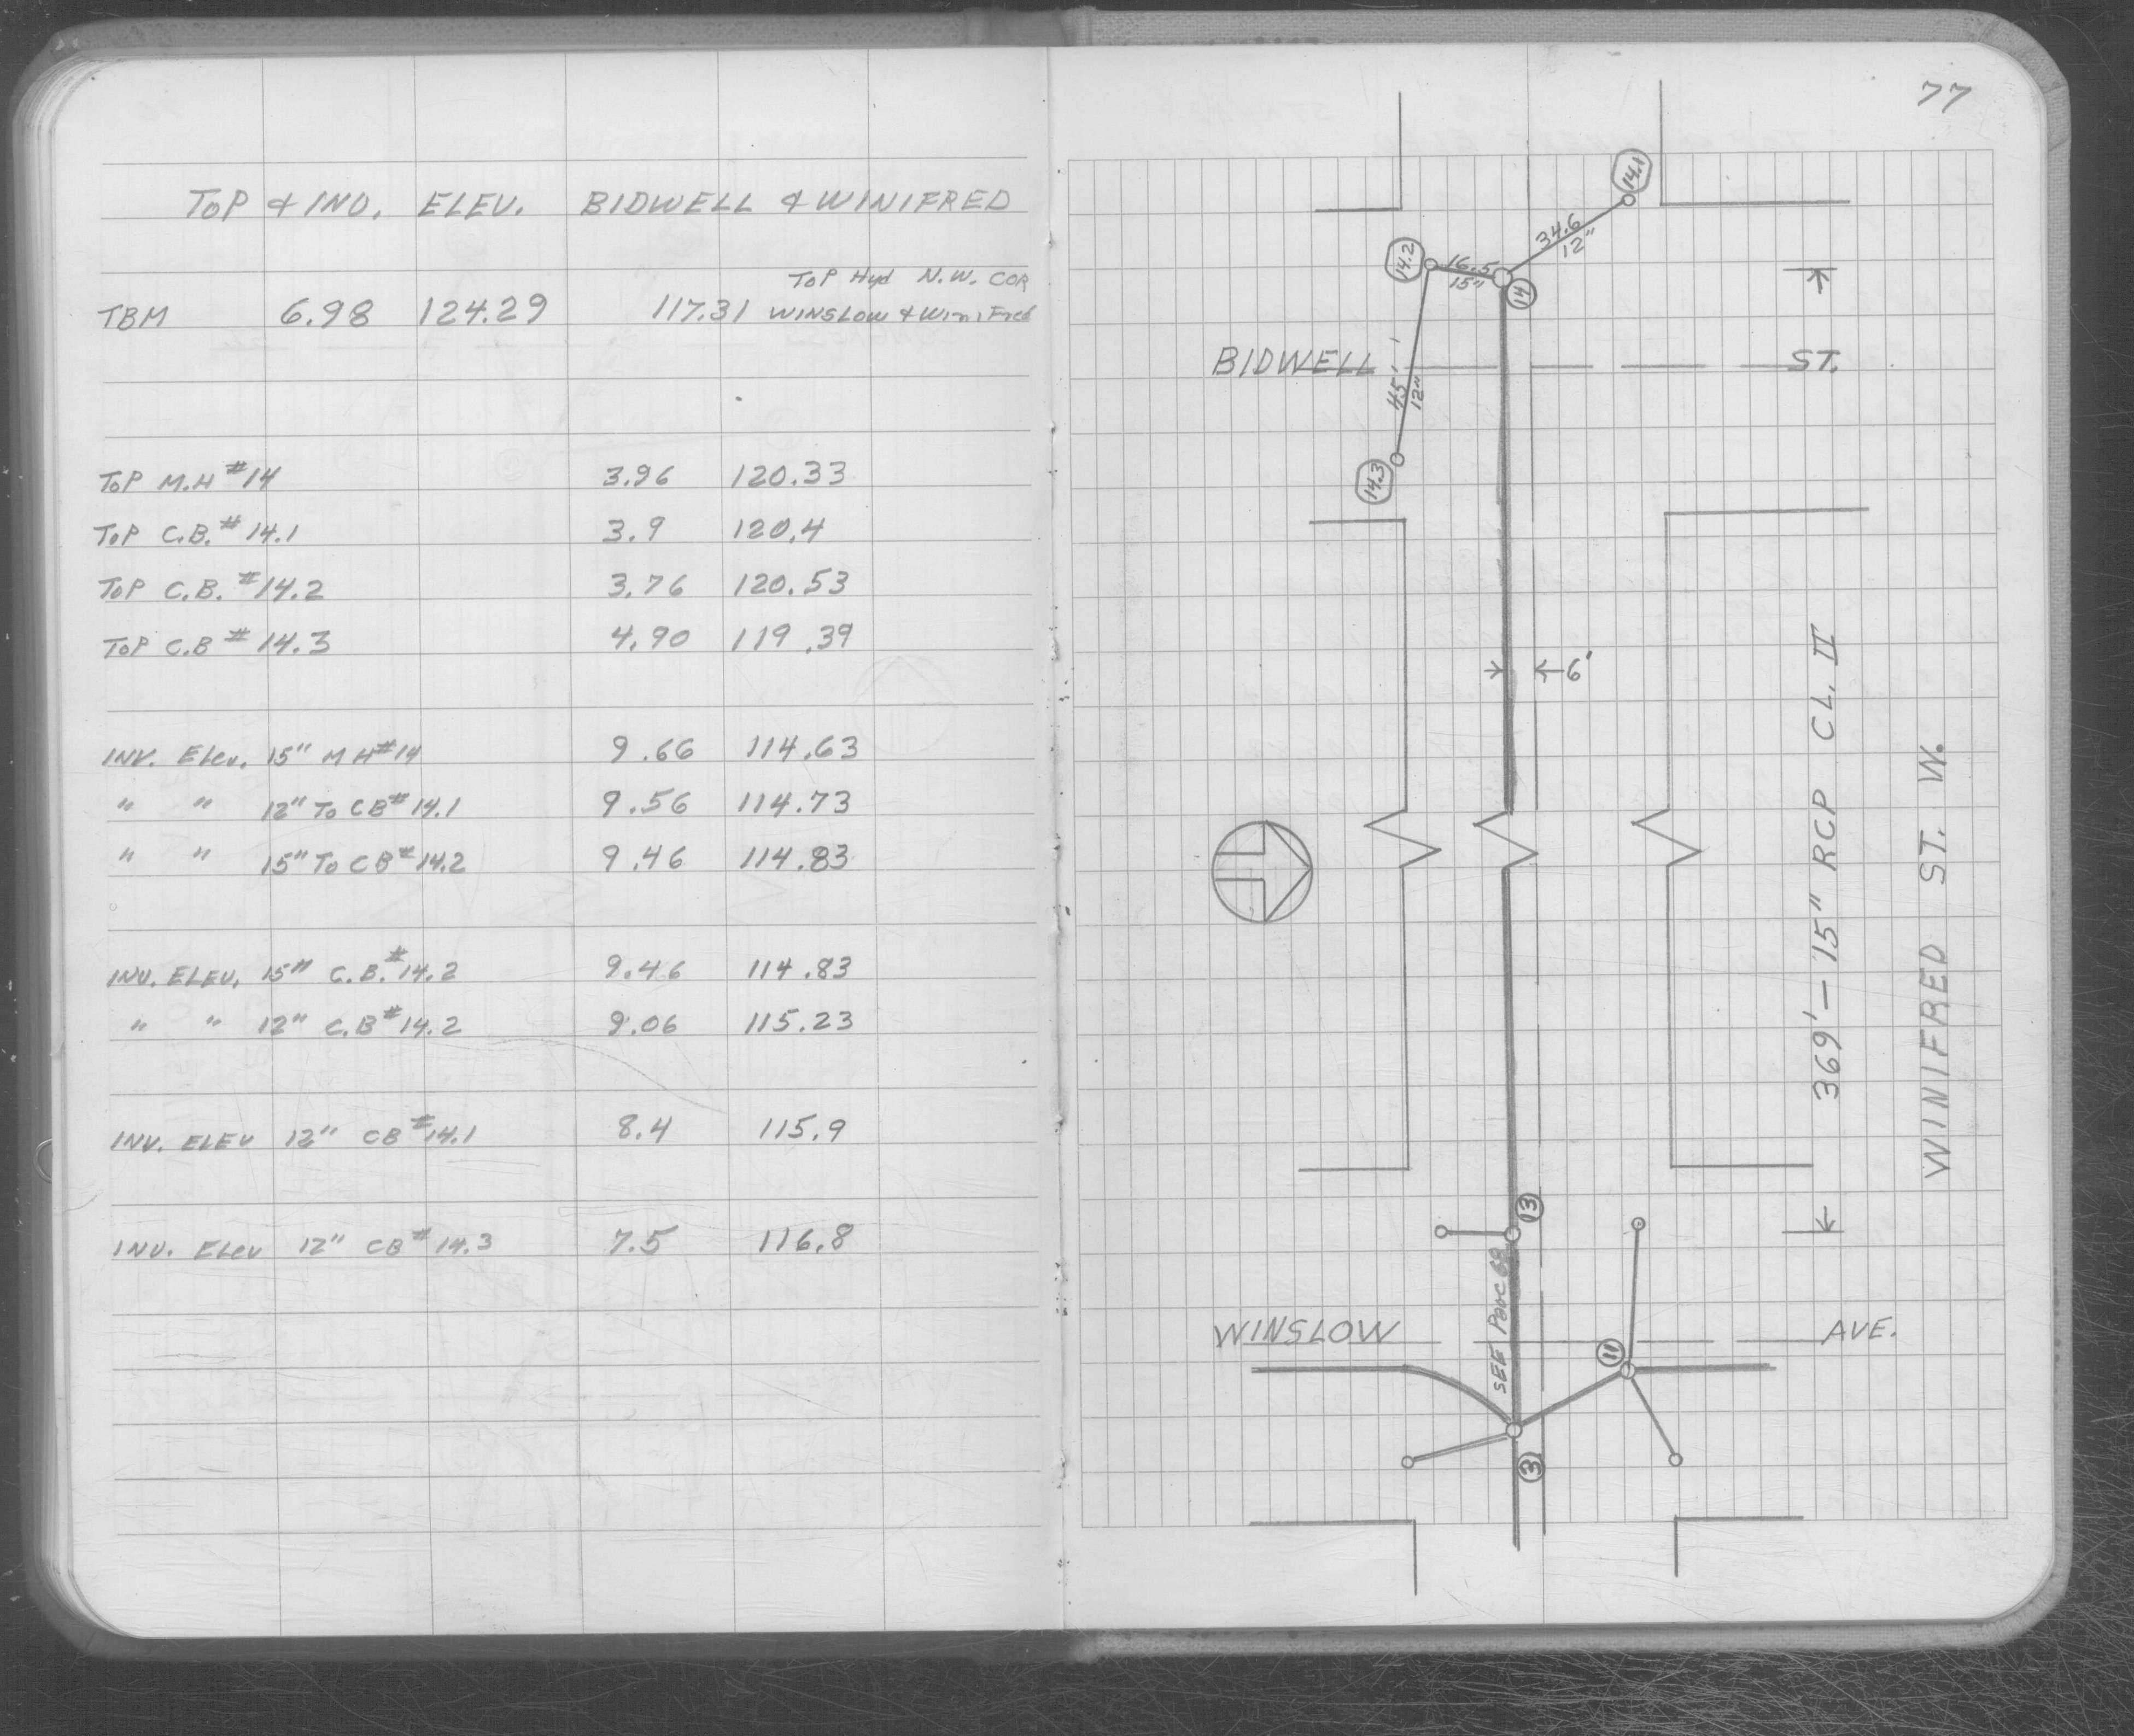 TOP & INV. ELEV. BIDWELL & WINIFRED
TOP Hyd N.W. COR
TBM 6.98 124.29 117.31 WINSLOW & WiniFred
TOP M.H #14 3.96 120.33
TOP C.B. #14.1 3.9 120.4
TOP C.B. #14.2 3.76 120.53
TOP C.B #14.3 4.90 119.39
INV. Elev. 15" MH#14 9.66 114.63
" " 12" To CB#14.1 9.56 114.73
" " 15" To CB#14.2 9.46 114.83
INV. ELEV. 15" C.B.#14.2 9.46 114.83
" " 12" C.B#14.2 9.06 115.23
INV. ELEV 12" CB#14.1 8.4 115.9
INV. Elev 12" CB#14.3 7.5 116.8
77
14.1
34.6
12"
14.2
16.5
15"
14
BIDWELL ST.
45'
12"
14.3
6'
369'-15" RCP CL. IV
WINIFRED ST. W.
13
SEE PAGE
WINSLOW AVE.
11
3